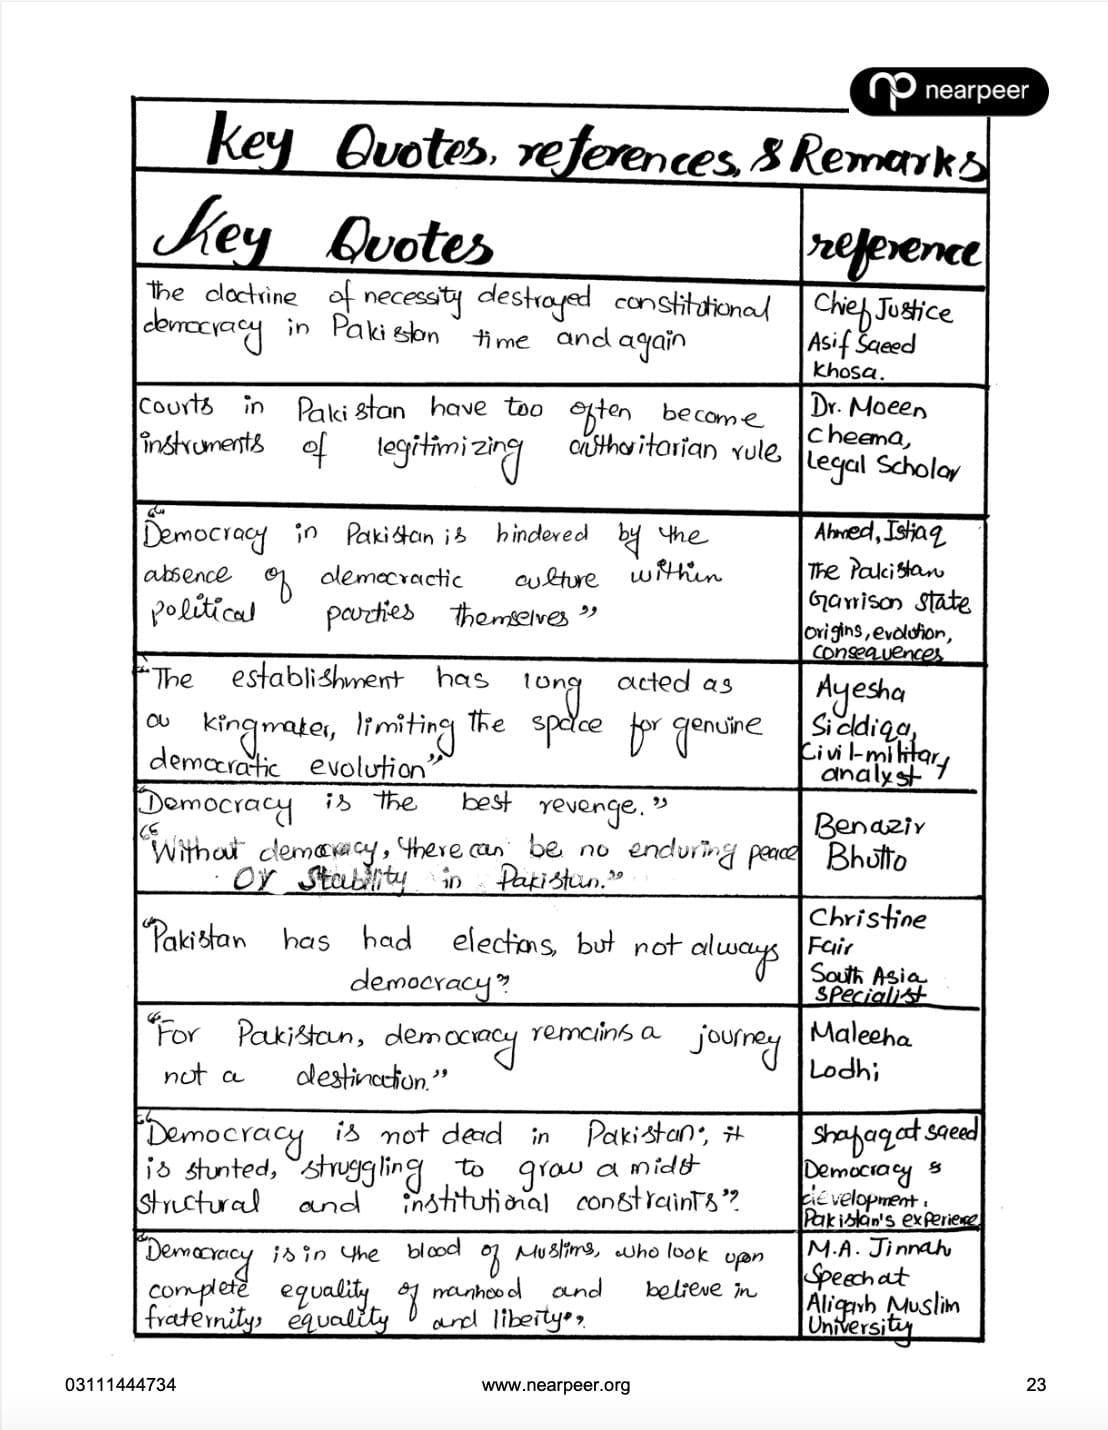 nearpeer
Key Quotes, references, & Remarks
Key Quotes
reference
The doctrine of necessity destroyed constitutional
democracy in Pakistan time and again
Chief Justice
Asif Saeed
Khosa.
Courts in Pakistan have too often become
instruments of legitimizing authoritarian rule
Dr. Moeen
Cheema,
Legal Scholar
"Democracy in Pakistan is hindered by the
absence of democractic culture within
political parties themselves"
Ahmed, Ishaq
The Pakistan
Garrison State
origins, evolution,
consequences
"The establishment has long acted as
a kingmaker, limiting the space for genuine
democratic evolution"
Ayesha
Siddiqa,
Civil-military
analyst
"Democracy is the best revenge."
"Without democracy, there can be no enduring peace
or stability in Pakistan."
Benazir
Bhutto
"Pakistan has had elections, but not always
democracy"
Christine
Fair
South Asia
specialist
"For Pakistan, democracy remains a journey
not a destination."
Maleeha
Lodhi
"Democracy is not dead in Pakistan; it
is stunted, struggling to grow amidst
structural and institutional constraints"
Shafaqat saeed
Democracy &
development.
Pakistan's experience
"Democracy is in the blood of Muslims, who look upon
complete equality of manhood and believe in
fraternity, equality and liberty."
M.A. Jinnah
Speech at
Aligarh Muslim
University
03111444734
www.nearpeer.org
23